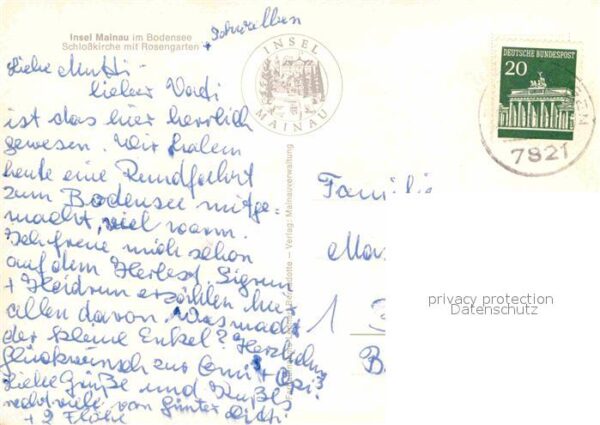 Insel Mainau im Bodensee
Schloßkirche mit Rosengarten
+ Schwalben
Liebe Mutti
lieber Vati
ist das hier herrlich
gewesen. Wir haben
heute eine Rundfahrt
zum Bodensee mitge-
macht, viel warm.
Ich freue mich schon
auf dem Herbst, Sigrun
+ Heidrun erzählen hier
allen davon. Was macht
der kleine Enkel? Herzlichen
Glückwunsch zur Omi + Opi?
Liebe Grüße und Küßle
recht viele von Günter
+ 2 Flöhe
INSEL
MAINAU
Verlag: Mainauverwaltung
DEUTSCHE BUNDESPOST
20
7821
Familie
1
privacy protection
Datenschutz